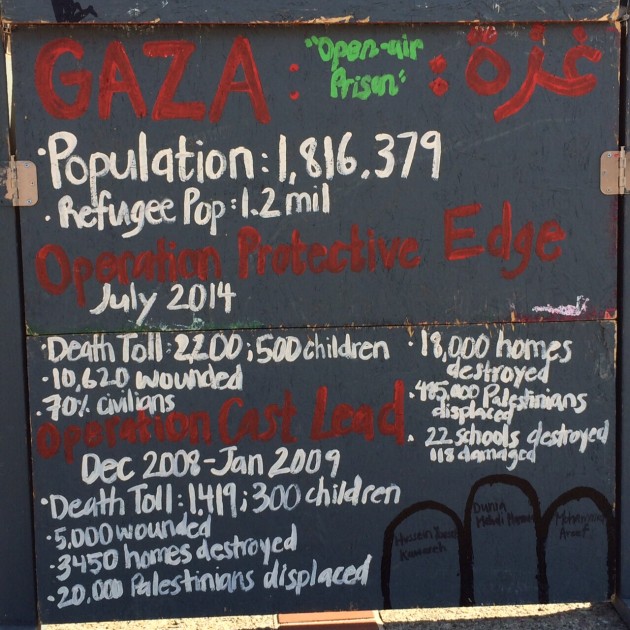 GAZA : "Open-air Prison" : غزة
· Population: 1,816,379
· Refugee Pop: 1.2 mil
Operation Protective Edge
July 2014
· Death Toll: 2,200; 500 children
· 10,620 wounded
· 70% civilians
· 18,000 homes
destroyed
· 485,000 Palestinians
displaced
· 22 schools destroyed
118 damaged
Operation Cast Lead
Dec 2008-Jan 2009
· Death Toll: 1,419; 300 children
· 5,000 wounded
· 3450 homes destroyed
· 20,000 Palestinians displaced
Hussein
Kawareh
Dunia
Mahdi
Mohammad